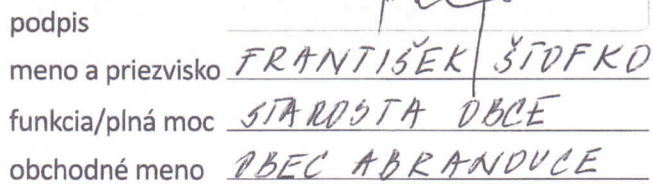 podpis
meno a priezvisko FRANTIŠEK ŠTOFKO
funkcia/plná moc STAROSTA OBCE
obchodné meno OBEC ABRANOVCE